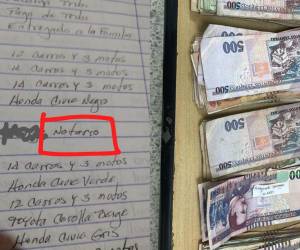 Pago de moto
Entregado a la Familia
12 carros y 3 motos
12 carros y 3 motos
14 carros y 3 motos
Honda Civic Negro
Notario
14 carros y 3 motos
Honda Civic Verde
12 carros y 3 motos
Toyota Corolla Beige
Honda Civic Gris
motos
500
500
500
500